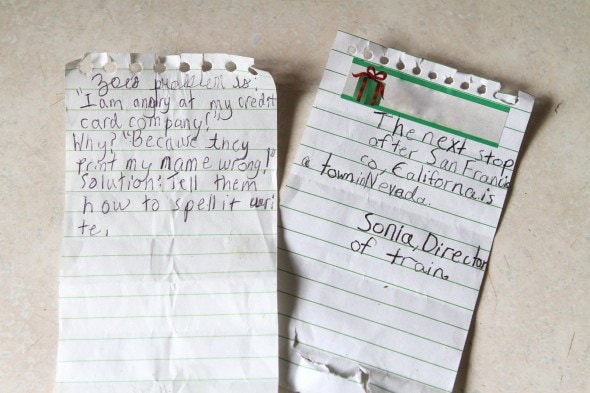 Zoe's problem is:
"I am angry at my credit
card company!"
Why? "Because they
print my name wrong!"
Solution: Tell them
how to spell it wri
te.
The next stop
after San Franic
co, California is
a town in Nevada.
Sonia, Director
of train